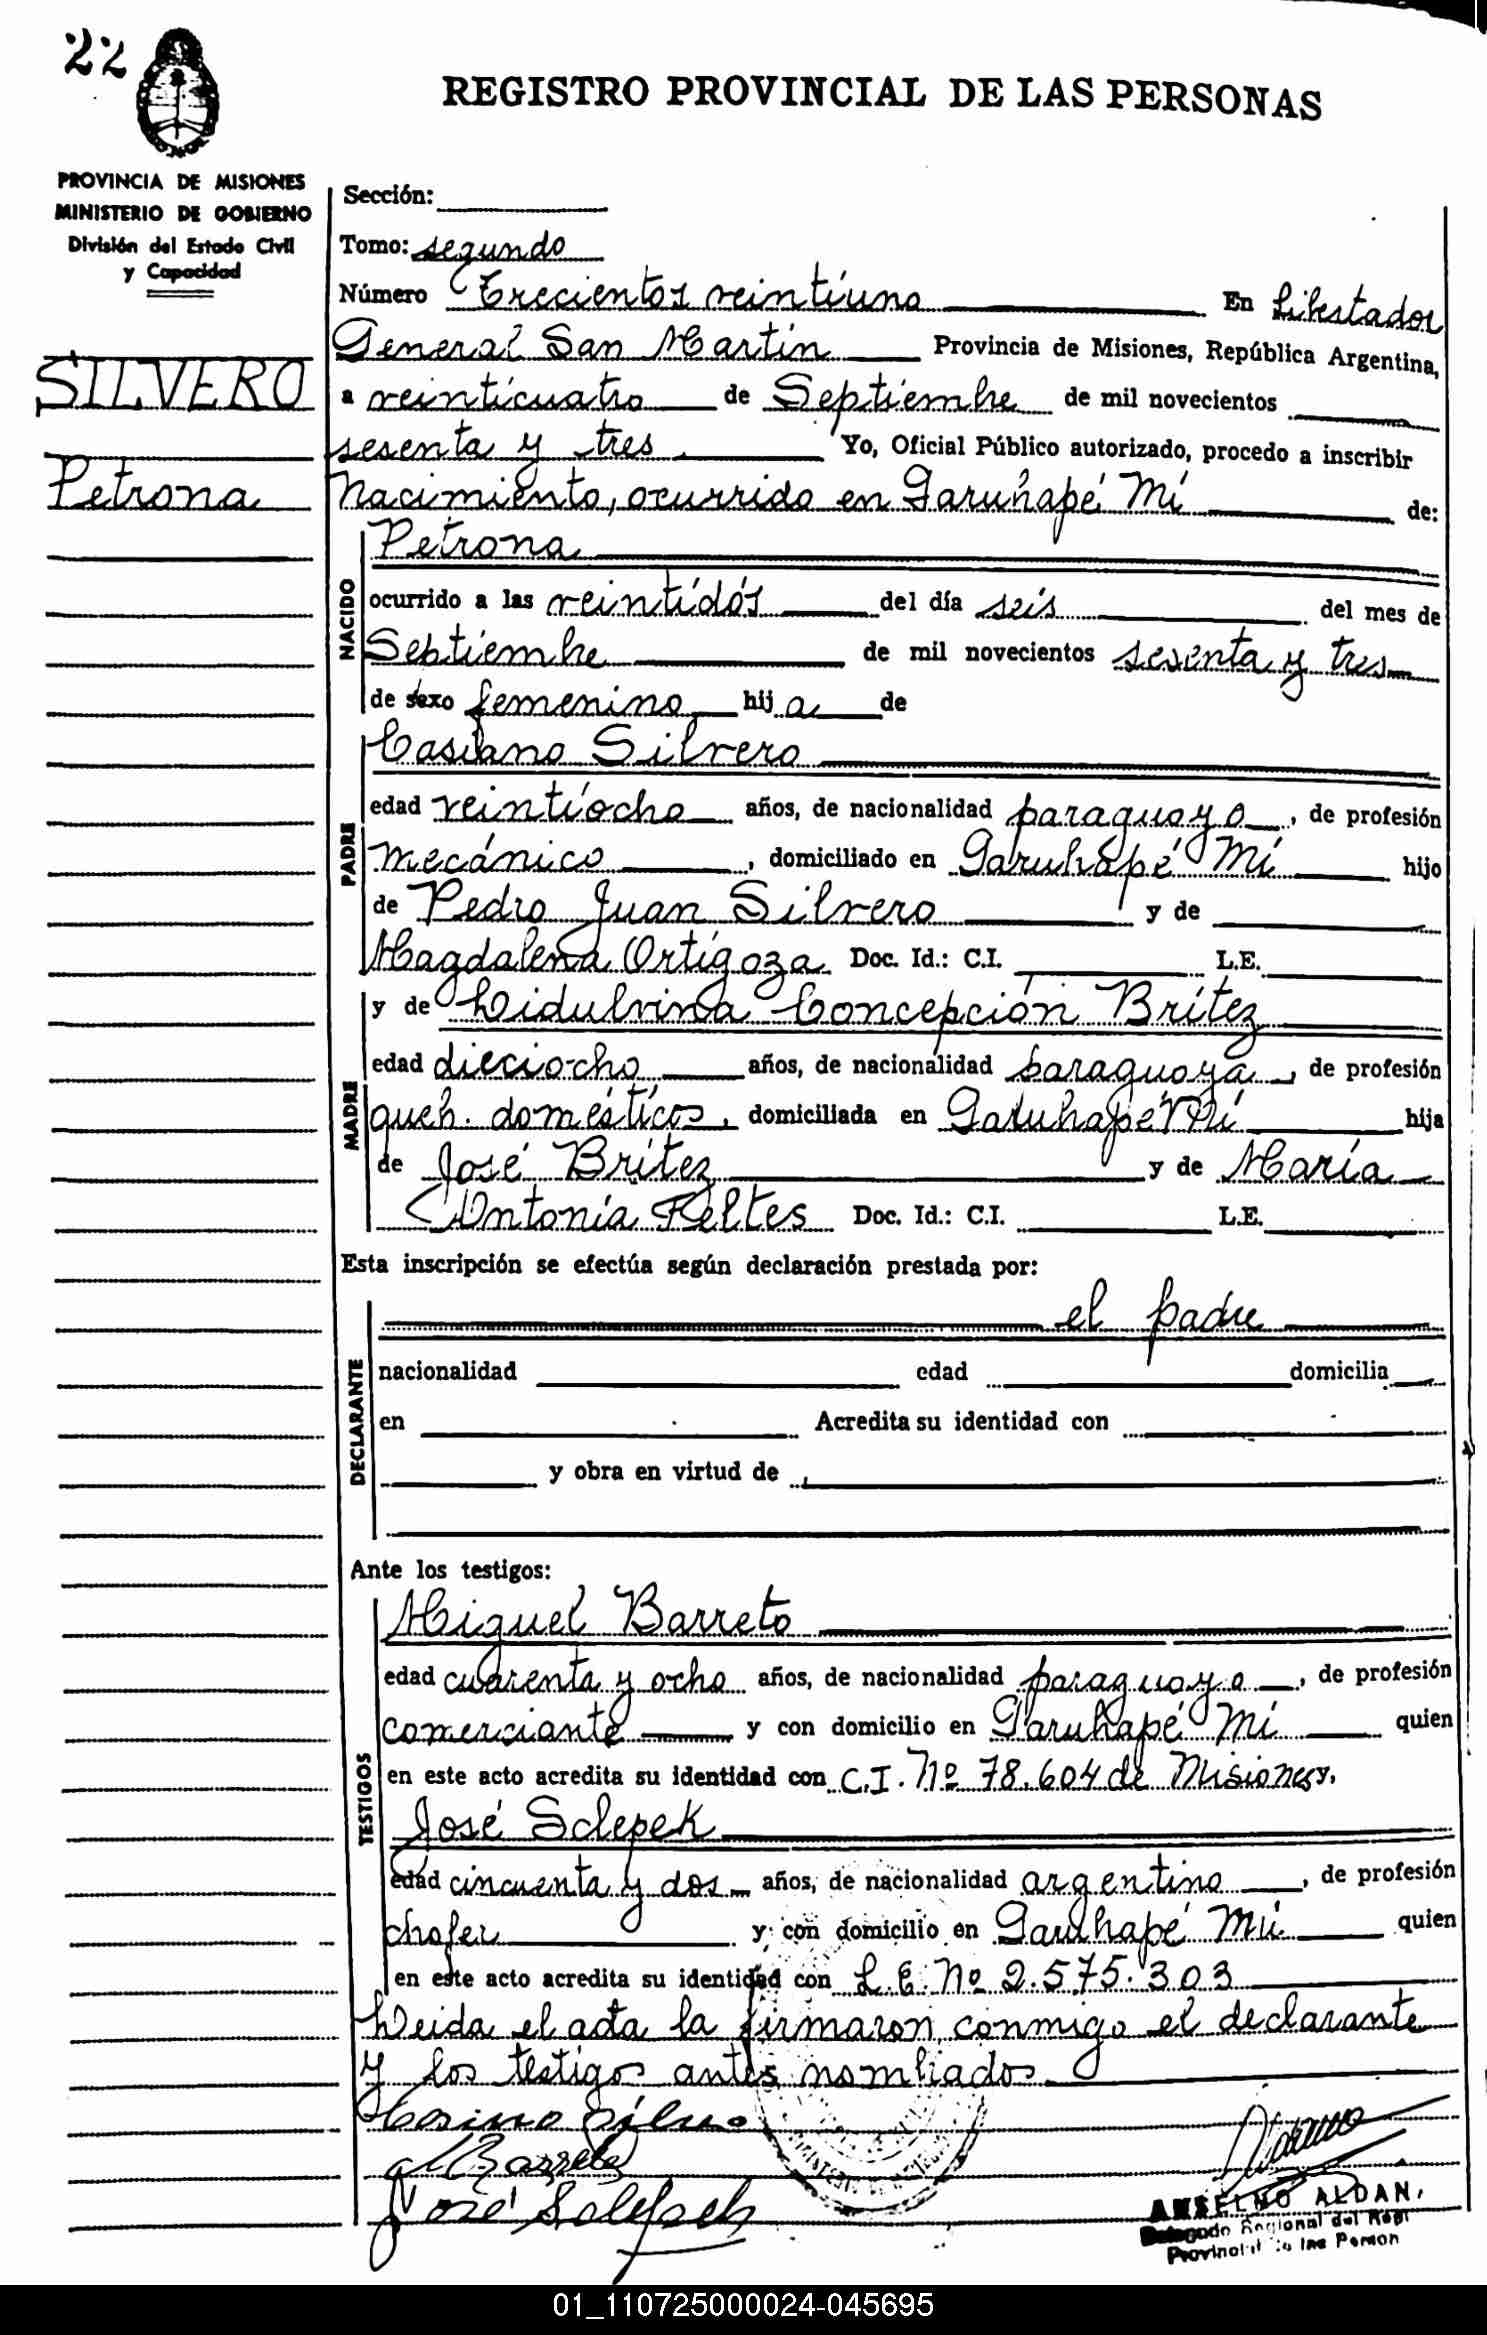 22
REGISTRO PROVINCIAL DE LAS PERSONAS
PROVINCIA DE MISIONES
MINISTERIO DE GOBIERNO
División del Estado Civil
y Capacidad
SILVERO
Petrona
Sección:
Tomo: segundo
Número Trecientos veintiuno En Libertador
General San Martín Provincia de Misiones, República Argentina,
a veinticuatro de Septiembre de mil novecientos
sesenta y tres Yo, Oficial Público autorizado, procedo a inscribir
Nacimiento, ocurrido en Garuhapé Mí de:
NACIDO
Petrona
ocurrido a las veintidós del día seis del mes de
Septiembre de mil novecientos sesenta y tres
de sexo femenino hij a de
PADRE
Casiano Silvero
edad veintiocho años, de nacionalidad paraguayo, de profesión
mecánico, domiciliado en Garuhapé Mí hijo
de Pedro Juan Silvero y de
Magdalena Ortigoza Doc. Id.: C.I. L.E.
MADRE
y de Lidulvina Concepción Brítez
edad dieciocho años, de nacionalidad paraguaya, de profesión
queh. domésticos, domiciliada en Garuhapé Mí hija
de José Brítez y de María
Antonia Feltes Doc. Id.: C.I. L.E.
Esta inscripción se efectúa según declaración prestada por:
DECLARANTE
el padre
nacionalidad edad domicilia
en Acredita su identidad con
y obra en virtud de
Ante los testigos:
TESTIGOS
Miguel Barreto
edad cuarenta y ocho años, de nacionalidad paraguayo, de profesión
comerciante y con domicilio en Garuhapé Mí quien
en este acto acredita su identidad con C.I. Nº 78.604 de Misiones y,
José Sclepek
edad cincuenta y dos años, de nacionalidad argentino, de profesión
chofer y con domicilio en Garuhapé Mí quien
en este acto acredita su identidad con L.E. Nº 2.575.303
Leida el acta la firmaron conmigo el declarante
y los testigos antes nombrados.
Barreto
José Sclepek
ANSELMO ALDAN
Delegado Regional del Regi
Provincial de las Person
01_110725000024-045695